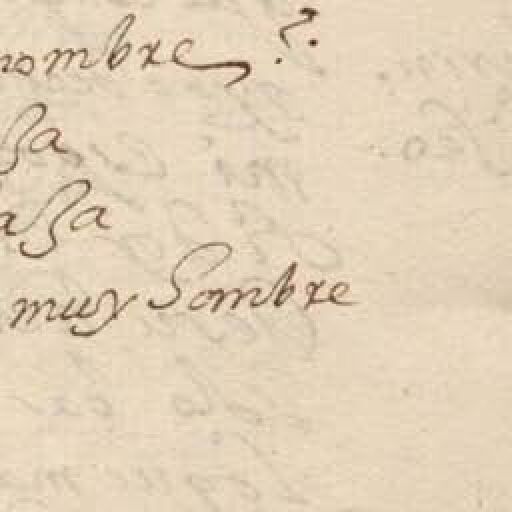 nombre ?.
za
aza
muy hombre